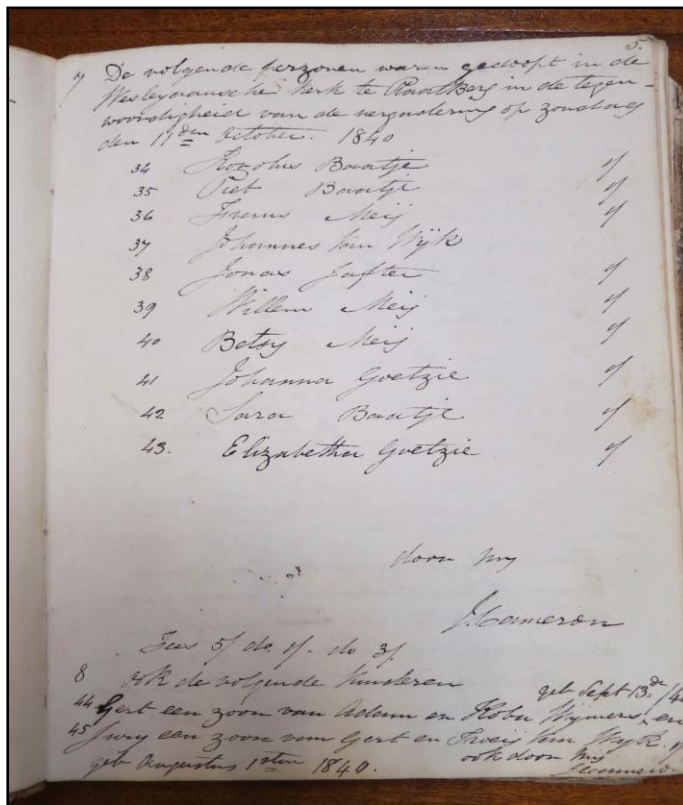 5.
7 De volgende perzonen waren gedoopt in de
Wesleyaansche Kerk te Raatberg in de tegen-
woordigheid van de vergadering op zondag
den 11den October. 1840
34 Baartje
35 Piet Baartje
36 Meij
37 Johannes Van Wijk
38 Jonas Jafter
39 Willem Meij
40 Betsy Meij
41 Johanna Goetzie
42 Sara Baartje
43. Elizabetha Goetzie
door my
J Cameron
Fees 5/ do. 1/. do 3/.
8 ook de volgende kinderen geb Sept 13de /40
44 Gert een zoon van Adam en Wijmers, en
45 Jurry een zoon van Gert en Van Wijk.
geb Augustus 1sten 1840. ook door my
JCameron